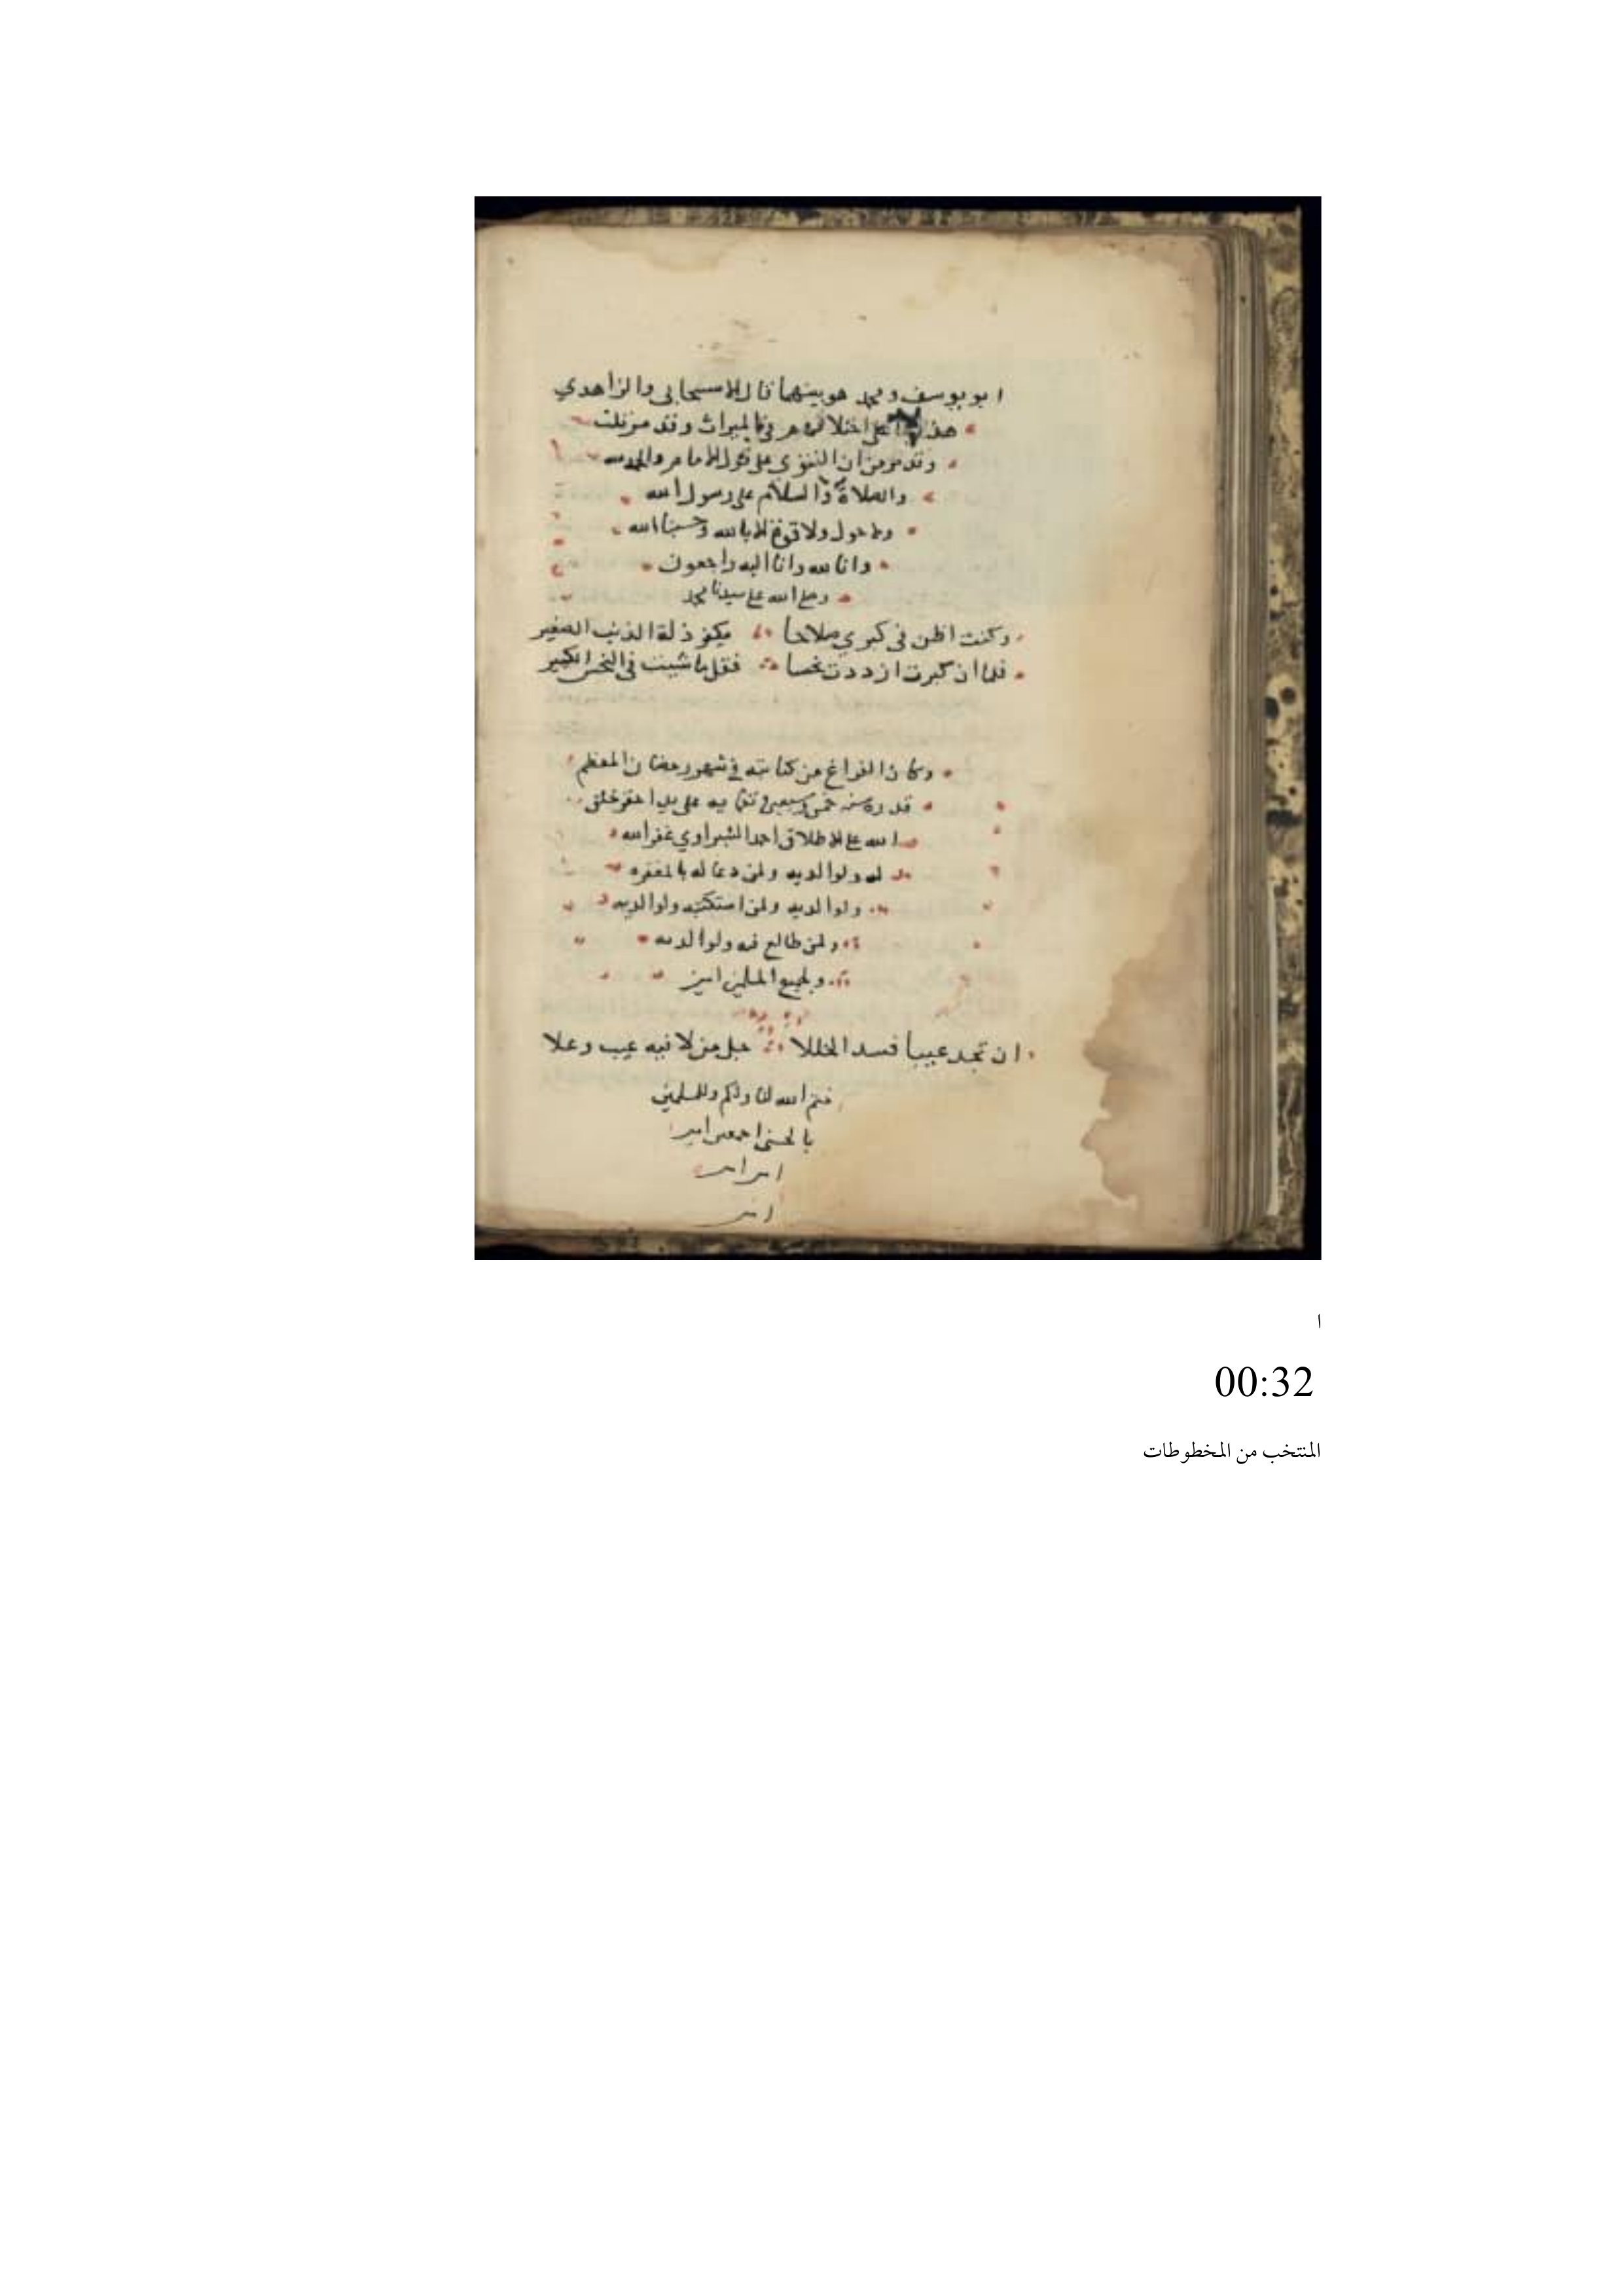 ابو يوسف ومحمد هو بينهما قال الاسبيجابي والزاهدي
هذا على اختلافهم في الميراث وقد مر قلت
وقد مر من ان الفتوى على قول الامام والحمد لله
والصلاة والسلام على رسول الله
ولا حول ولا قوة الا بالله وحسبنا الله
وانا لله وانا اليه راجعون
وصلى الله على سيدنا محمد
وكنت اظن في كبري صلاحا يكفر ذلة الذنب الصغير
فلما ان كبرت ازددت نحسا فقل ما شيت في النحس الكبير
وكان الفراغ من كتابته في شهر رمضان المعظم
قدره سنة خمس وسبعين على يد احقر خلق
الله على الاطلاق احمد الشبراوي غفر الله
له ولوالديه ولمن دعا له بالمغفرة
ولوالديه ولمن استكتبه ولوالديه
ولمن طالع فيه ولوالديه
ولجميع المسلمين امين
ان تجد عيبا فسد الخللا جل من لا فيه عيب وعلا
ختم الله لنا ولكم وللمسلمين
بالحسنى اجمعين امين
امين امين
امين
ا
00:32
المنتخب من المخطوطات